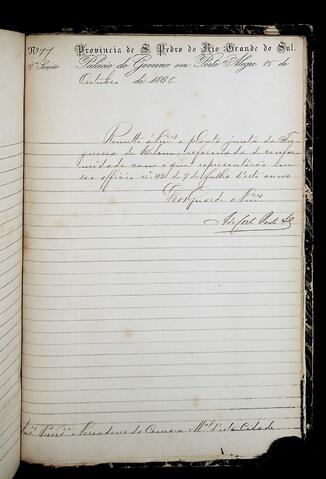 Nº 77
Provincia de S. Pedro do Rio Grande do Sul.
Palacio do Governo em Porto Alegre 15 de
Outubro de 186
Remetto á Vmces a planta junta da
de Belem reformada de confor-
midade com o que representárão em
seo officio nº 43 de 7 de Julho d'este anno
Deos Guarde a Vmces
Presid.e e Vereadores da Camara M.al d'esta Cidade